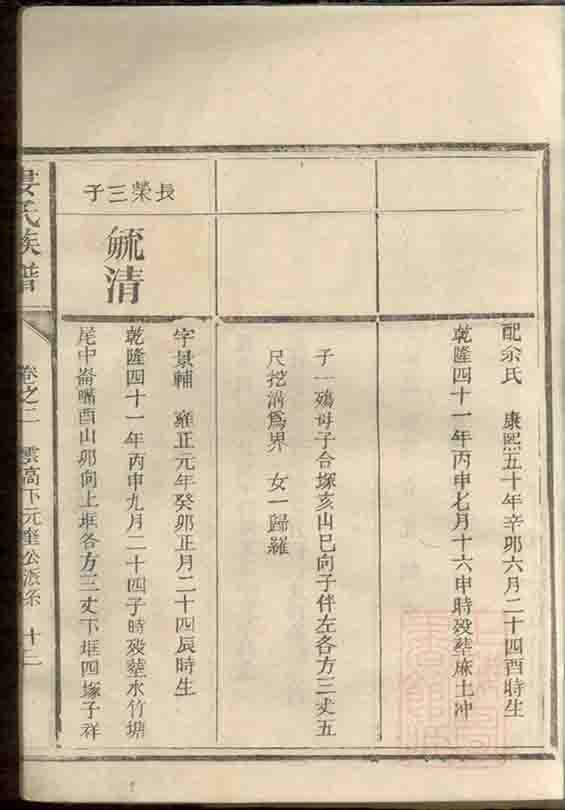 配佘氏 康熙五十年辛卯六月二十四酉時生
乾隆四十一年丙申七月十六申時殁塟麻土冲
子一殤母子合塚亥山巳向子伴左各方三丈五
尺挖溝爲界 女一歸羅
長榮三子
毓清
字景輔 雍正元年癸卯正月二十四辰時生
乾隆四十一年丙申九月二十四子時殁塟水竹塘
尾中崙嘴酉山卯向上堆各方三丈下堆四塚子祥
婁氏族譜
卷之二 雲高下元奎公派系 十二